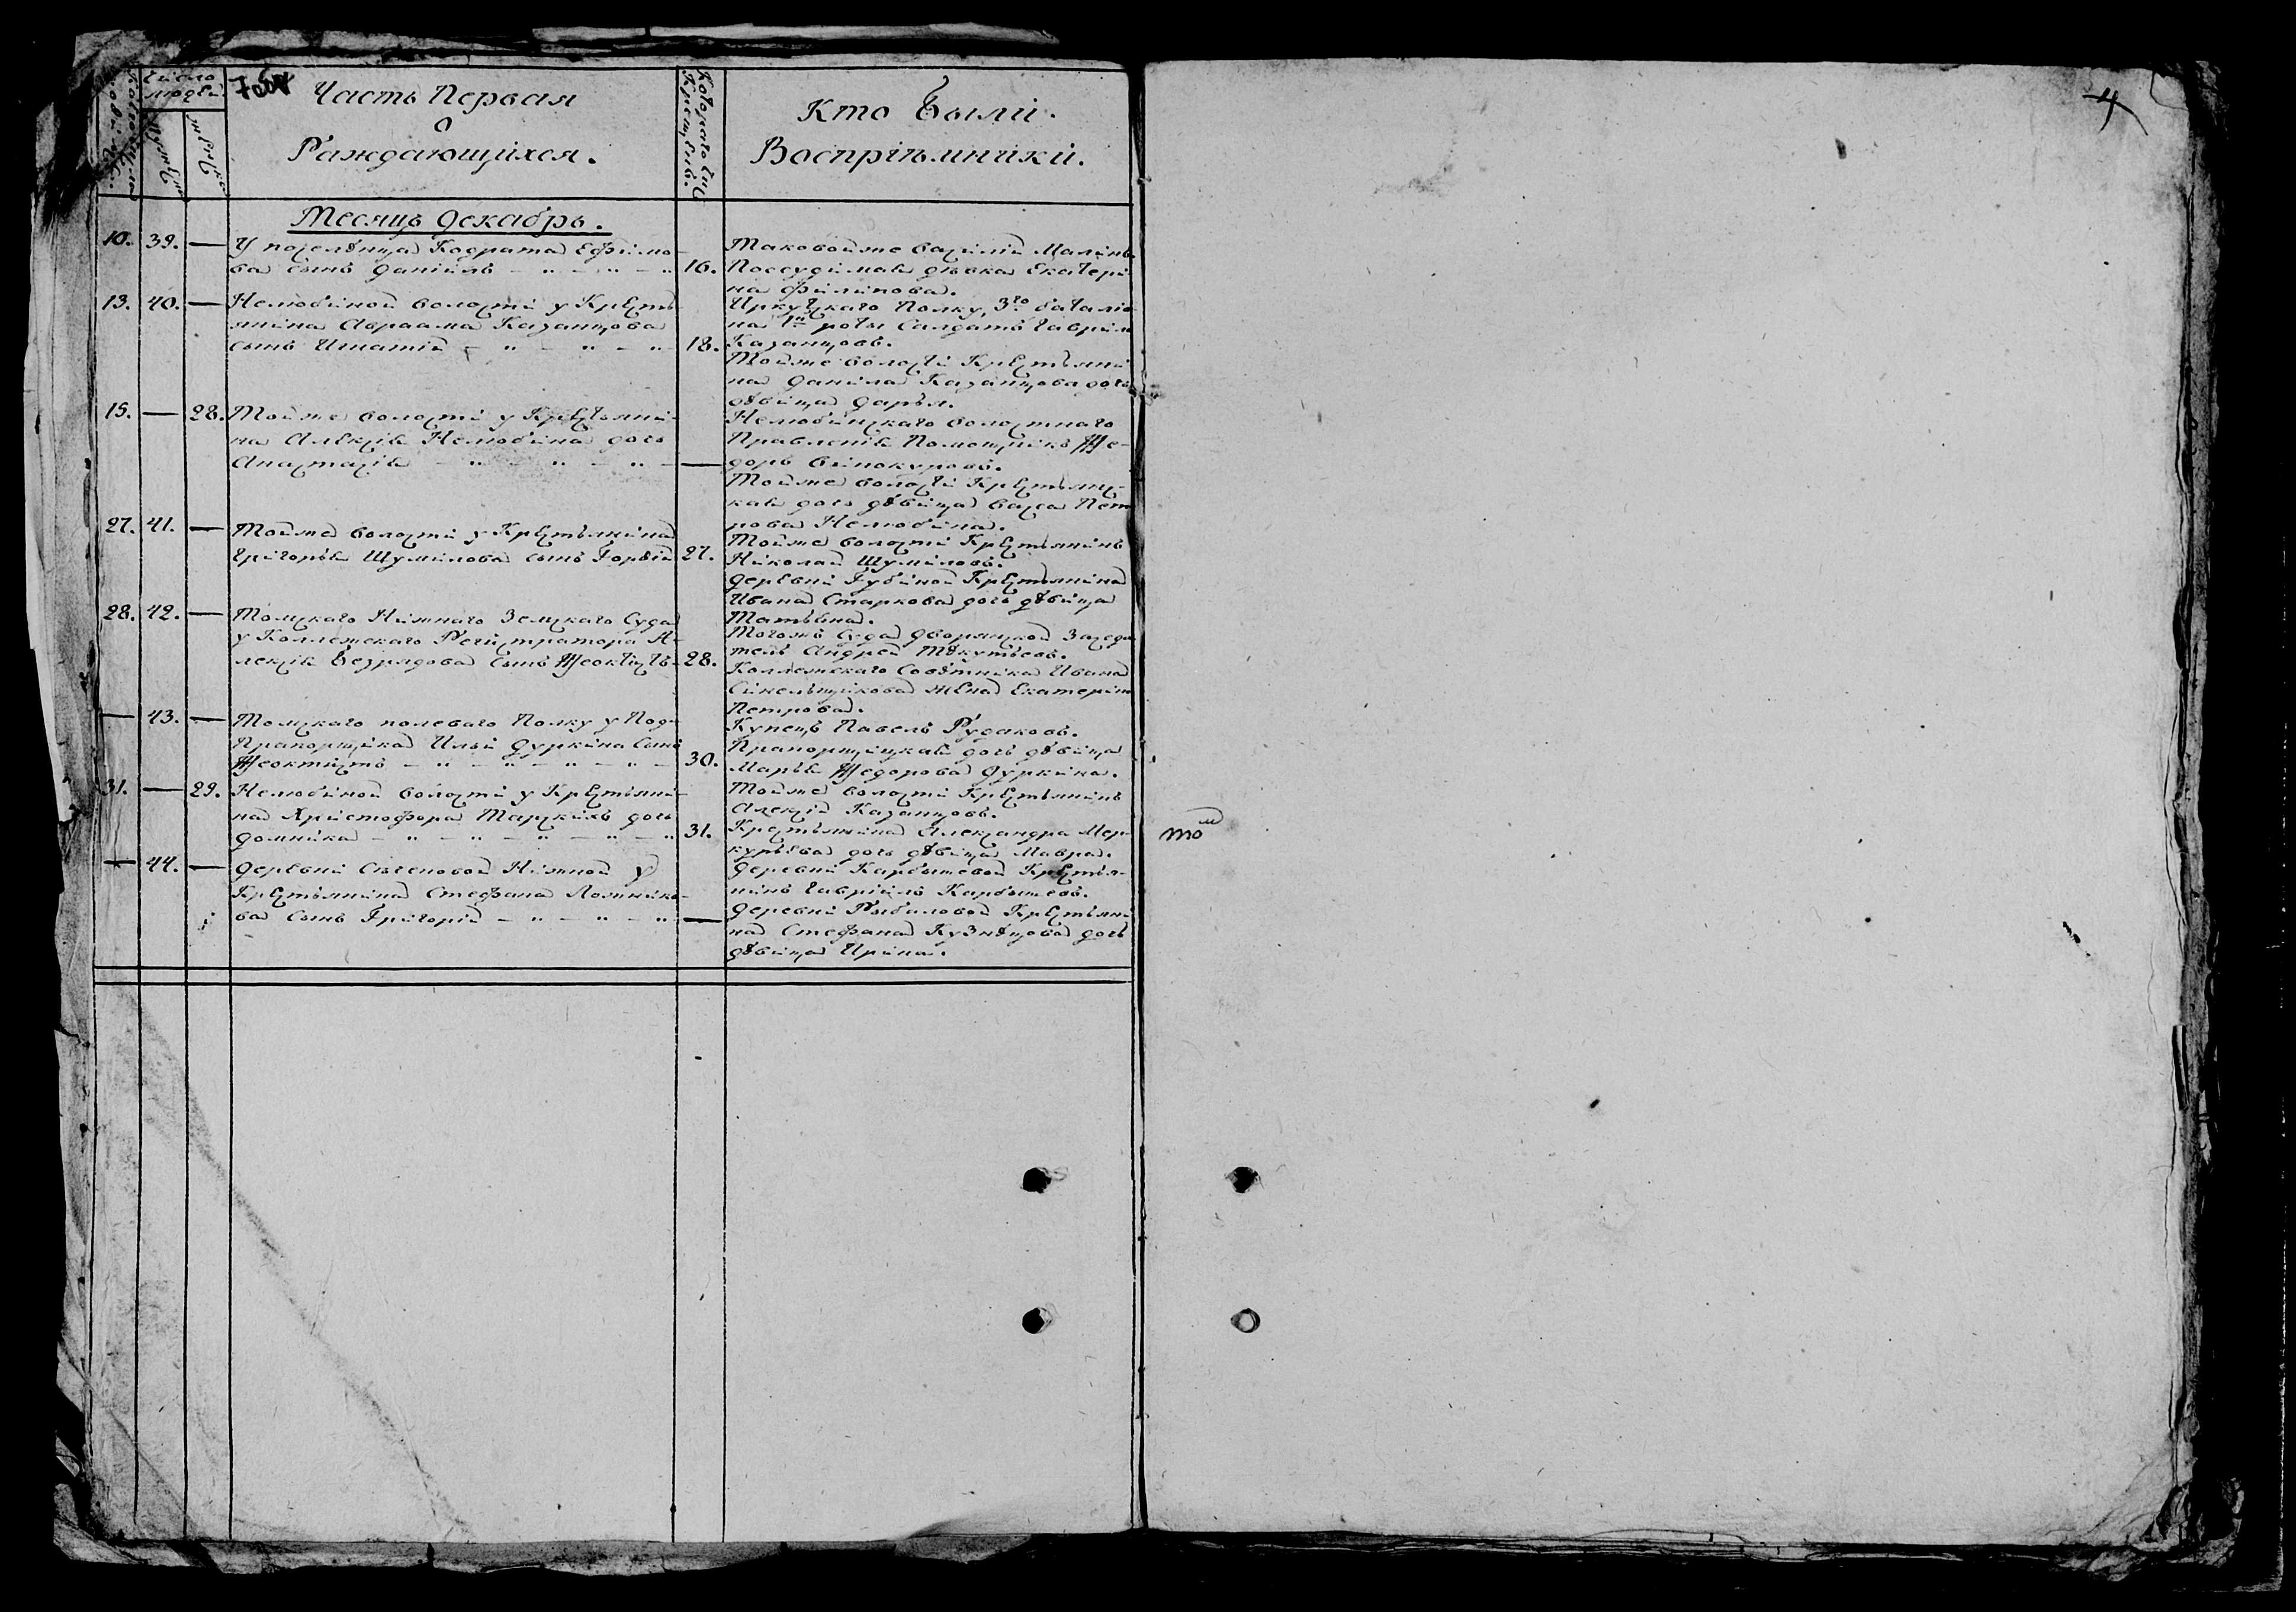 Число людей
Часть Первая
о
Раждающихся.
Котораго чис
Крещены.
Кто Были
Воспріемники.
Месяцъ Декабрь.
10. 39. — У поселѣнца Кодрата Ефимо-
ва сынъ Даніилъ 16.
Таковойже Василій Малинъ
Поссудимая дѣвка Екатери-
на Филипова.
13. 40. — Нелюбиной волости у Крестъ-
янина Авраама Казанцова
сынъ Игнатій 18.
Иркуцкаго Полку, 3го баталіо-
на 1й роты Салдатъ Гаврил
Казанцовъ.
Тойже волости Крестьяни-
на Данила Казанцова дочь
дѣвица Дарья.
15. — 28. Тойже волости у Крестьяни-
на Алексія Нелюбина дочь
Анастасія —
Нелюбинскаго волостнаго
Правленія Помощникъ Ѳе-
доръ Винокуровъ.
Тойже волости Крестьянс-
кая дочь дѣвица Васса Пет
рова Нелюбина.
27. 41. — Тойже волости у Крестьянина
Григорья Шумилова сынъ Гордій 27.
Тойже волости Крестьянинъ
Николай Шумиловъ.
Деревни Губиной Крестьянина
Ивана Старкова дочь дѣвица
Татьяна.
28. 42. — Томскаго Нижнаго Земскаго Суда
у Коллежскаго Регистратора А-
лексія Безрядова сынъ Ѳеоктистъ 28.
Тогожъ Суда Дворянской Заседа
тель Андрей Тѣкутьевъ.
Коллежскаго Совѣтника Ивана
Синельникова жена Екатерин
Петрова.
— 43. — Томскаго полеваго Полку у Под-
Прапорщика Ильи Дуркина сынъ
Ѳеоктистъ 30.
Купецъ Павелъ Рудаковъ.
Прапорщицкая дочь дѣвица
Марья Ѳедорова Дуркина.
31. — 29. Нелюбиной волости у Крестьяни-
на Христофора Тарскихъ дочь
Домника 31.
Тойже волости Крестьянинъ
Алексій Казанцовъ.
Крестьянина Александра Мер-
курьева дочь дѣвица Мавра.
— 44. — Деревни Сѣченовой Нижной у
Крестьянина Стефана Ложнико-
ва сынъ Григорій —
Деревни Карбышевой Крестья-
нинъ Гавріилъ Карбышевъ.
Деревни Рыбаловой Крестьяни
на Стефана Кузнѣцова дочь
дѣвица Ирина.
4
то